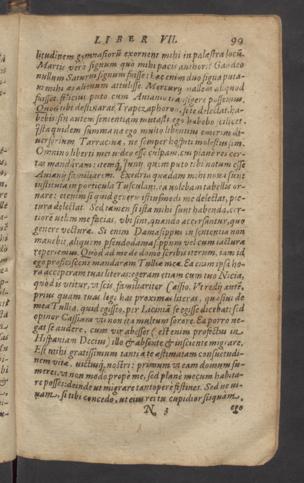 LIBER VII. 99
litudinem gymnasiorū exornent mihi in palæstra locū.
Martis verò signum quò mihi pacis authori? Gaudeo
nullum Saturni signum fuisse: hæc enim duo signa puta-
rem mihi æs alienum attulisse. Mercury mallem aliquod
fuisset: felicius puto cum Auianio transigere possemus.
Quòd tibi destinaras Trapezophoron, si te delectat, ha-
bebis: sin autem sententiam mutasti, ego habebo scilicet.
Ista quidem summa næ ego multo libentius emerim di-
uersorium Tarracinæ, ne semper hospiti molestus sim.
Omnino liberti mei video esse culpam, cui planè res cer-
tas mandaram: itemq́; Iunij, quem puto tibi notum esse
Auianij familiarem. Exedria quædam mihi noua sunt
instituta in porticula Tusculani. ea volebam tabellis or-
nare: etenim si quid generis istiusmodi me delectat, pic-
tura delectat. Sed tamen si ista mihi sunt habenda, cer-
tiorē velim me facias, vbi sint, quando accersantur, quo
genere vecturæ. Si enim Damasippus in sententia non
manebit, aliquem pseudodamasippum vel cum iactura
reperiemus. Quòd ad me de domo scribis iterum, iam id
ego proficiscens mandaram Tulliæ meæ. Ea enim ipsa ho-
ra acceperam tuas literas: egeram etiam cum tuo Nicia,
quòd is vtitur, vt scis, familiariter Cassio. Vt redij autē,
prius quàm tuas legi has proximas literas, quæsiui de
mea Tullia, quid egisset. per Liciniā se egisse dicebat: sed
opinor Cassium vti non ita multùm sorore. Ea porro ne-
gat se audere, cum vir abesset (est enim profectus in
Hispaniam Decius) illo & absente & insciente migrare.
Est mihi gratissimum tanti à te æstimatam consuetudi-
nem vitæ victusq́; nostri: primùm vt eam domum su-
meres, vt non modo propè me, sed planè mecum habita-
re posses: deinde vt migrare tantopere festines. Sed ne vi-
uam, si tibi concedo, vt eius rei tu cupidior sis quàm
N 3 ego